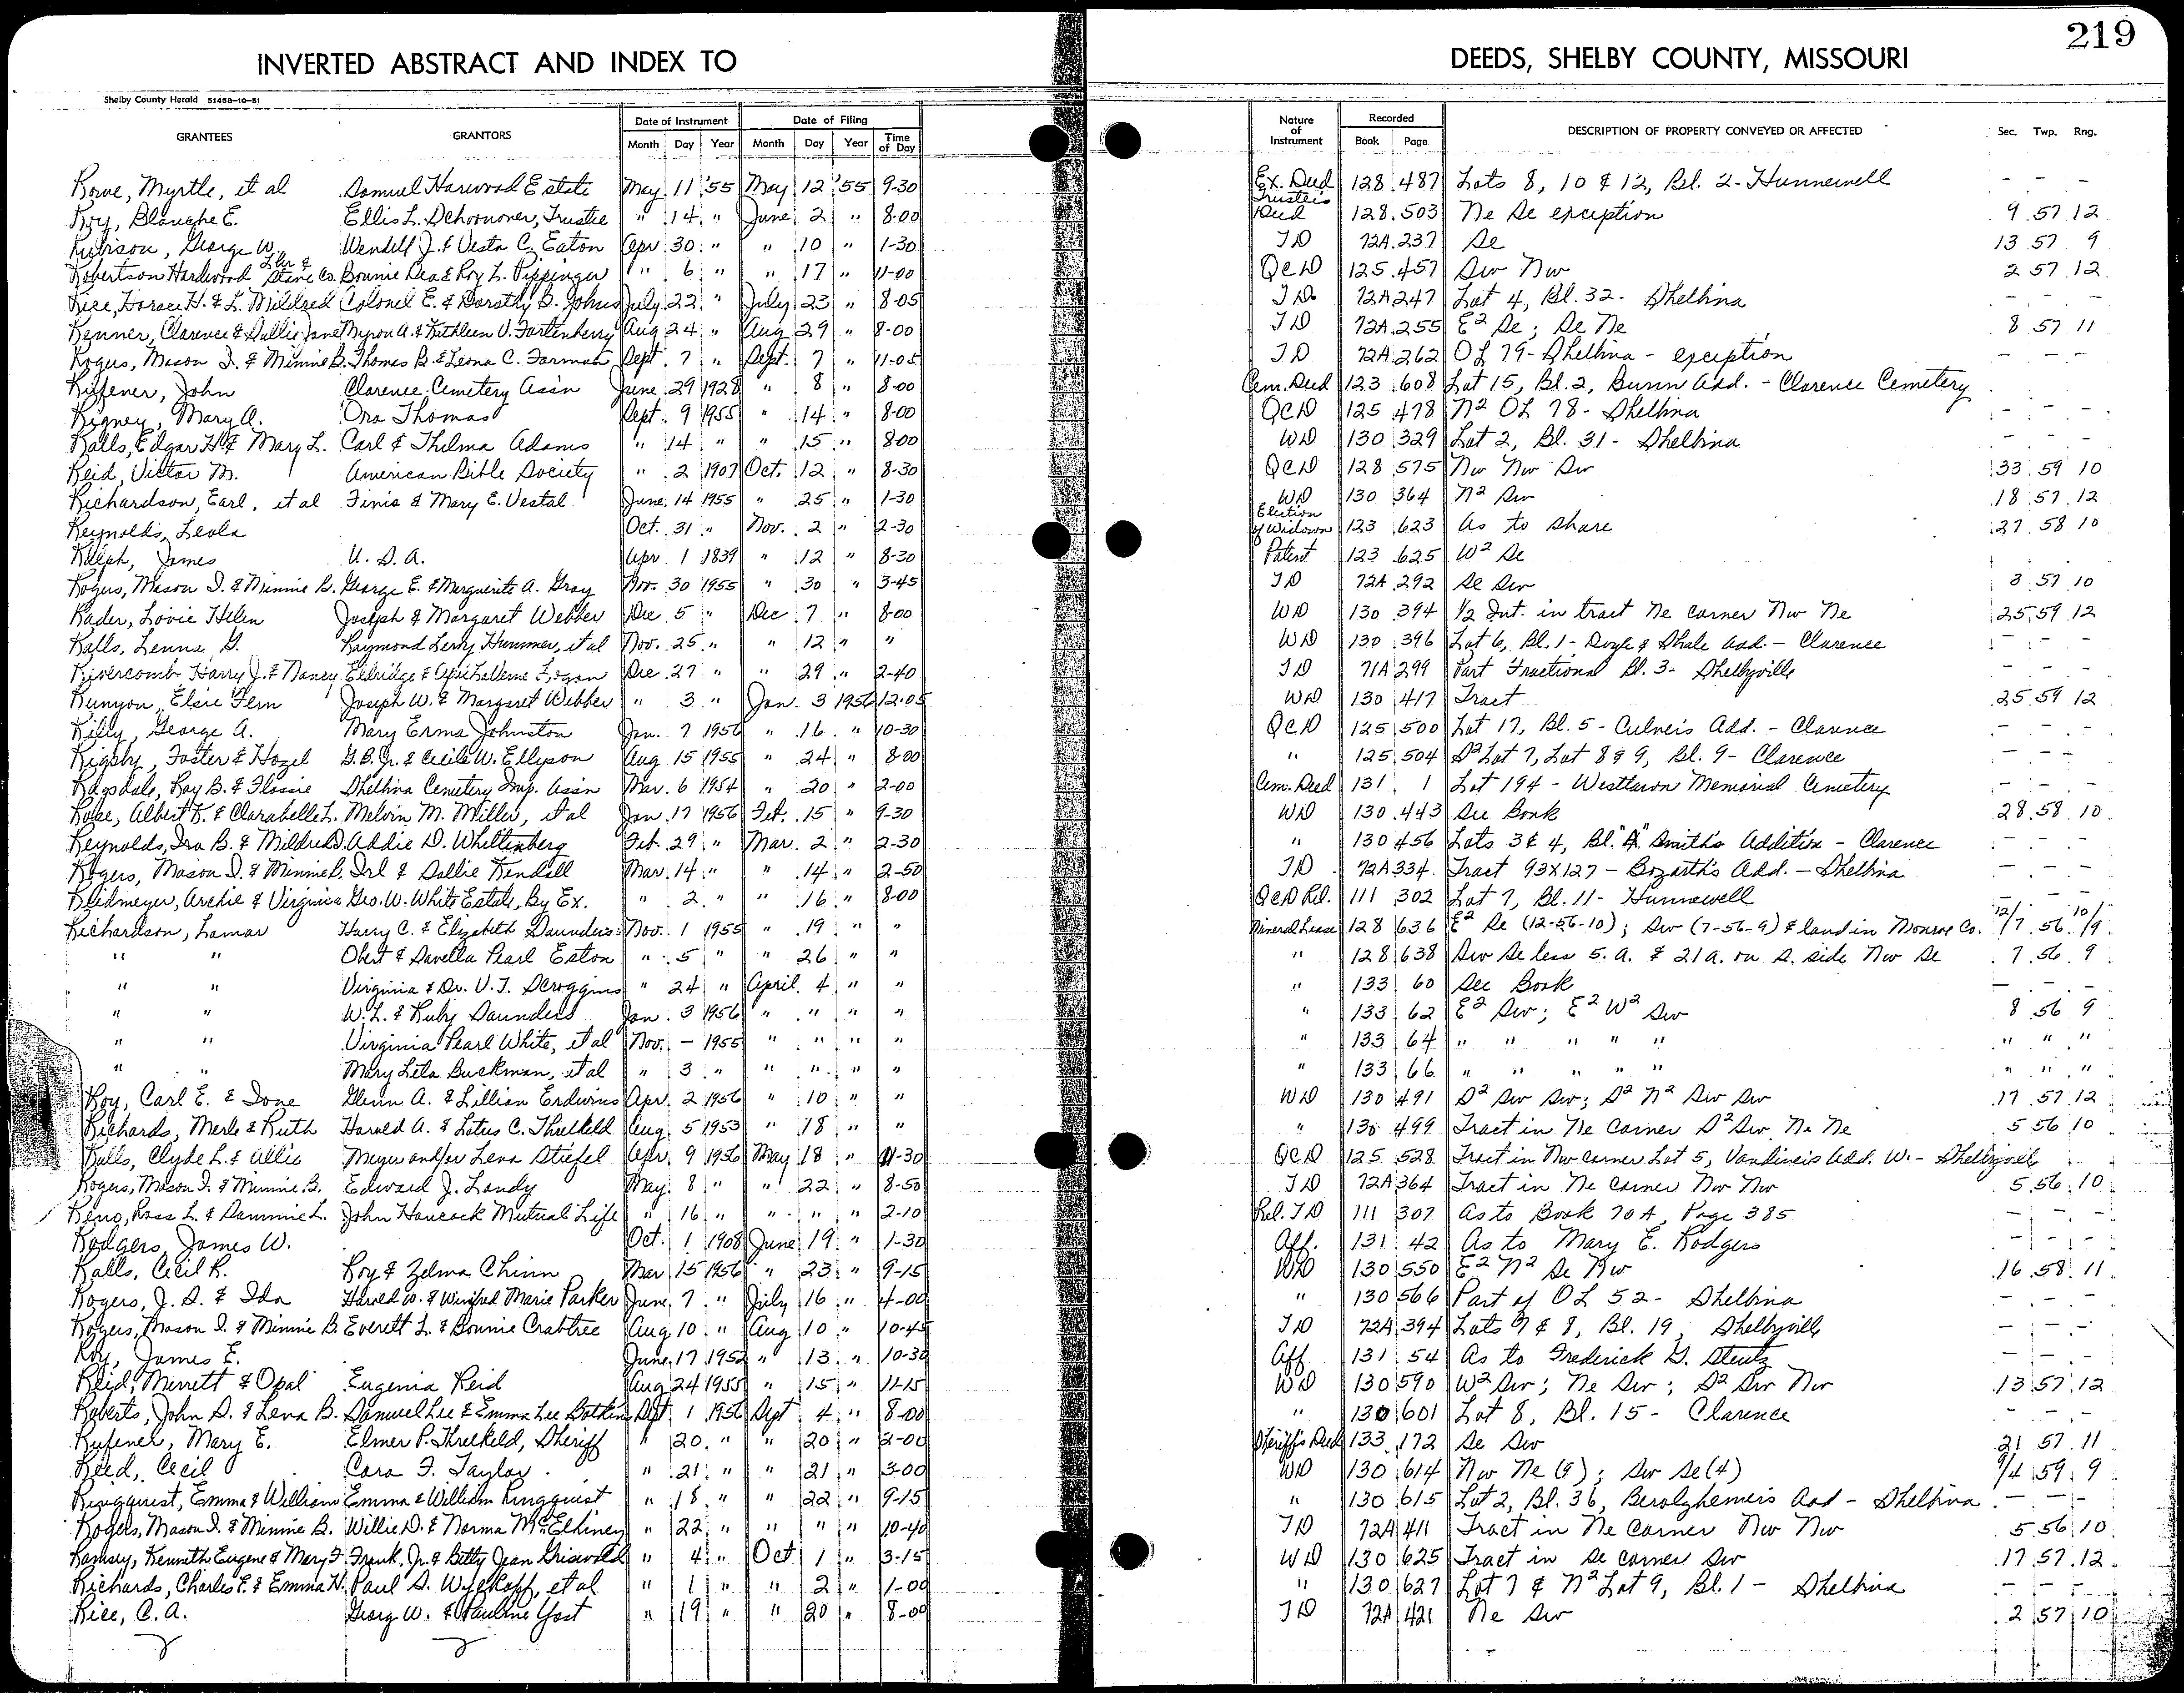 219
INVERTED ABSTRACT AND INDEX TO DEEDS, SHELBY COUNTY, MISSOURI
Shelby County Herald 51458-10-51
GRANTEES GRANTORS Date of Instrument Date of Filing Nature of Instrument Recorded DESCRIPTION OF PROPERTY CONVEYED OR AFFECTED Sec. Twp. Rng.
Month Day Year Month Day Year Time of Day Book Page
Rowe, Myrtle, et al Samuel Harwood Estate May 11 '55 May 12 '55 9-30 Ex. Deed 128 487 Lots 8, 10 & 12, Bl. 2 - Hunnewell - - -
Roy, Blanche E. Ellis L. Schoonover, Trustee " 14 " June 2 " 8-00 Trustee's Deed 128 503 Ne Se exception 9 57 12
Rubison, George W. Wendell J. & Vesta C. Eaton Apr 30 " " 10 " 1-30 TD 72A 237 Se 13 57 9
Robertson Hardwood Lbr & Stave Co. Bonnie Rea & Roy L. Pippinger " 6 " " 17 " 11-00 QCD 125 457 Sw Nw 2 57 12
Rice, Horace H. & L. Mildred Colonel E. & Dorothy B. Johns July 22 " July 23 " 8-05 TD 72A 247 Lot 4, Bl. 32 - Shelbina - - -
Renner, Clarence & Sallie Jane Myron A. & Kathleen V. Fortenberry Aug 24 " Aug 29 " 8-00 TD 72A 255 E² Se; Se Ne 8 57 11
Rogers, Mason I. & Minnie B. Thomas B. & Leona C. Forman Sept 7 " Sept. 7 " 11-05 TD 72A 262 OL 79 - Shelbina - exception - - -
Ruffener, John Clarence Cemetery Ass'n June 29 1928 " 8 " 8-00 Cem. Deed 123 608 Lot 15, Bl. 2, Bunn Add. - Clarence Cemetery
Rigney, Mary A. Ora Thomas Sept. 9 1955 " 14 " 8-00 QCD 125 478 N² OL 78 - Shelbina - - -
Ralls, Edgar H. & Mary L. Carl & Thelma Adams " 14 " " 15 " 8-00 WD 130 329 Lot 2, Bl. 31 - Shelbina - - -
Reid, Victor M. American Bible Society " 2 1907 Oct. 12 " 8-30 QCD 128 575 Nw Nw Sw 33 59 10
Richardson, Earl, et al Finis & Mary E. Vestal June 14 1955 " 25 " 1-30 WD 130 364 N² Sw 18 57 12
Reynolds, Leola Oct. 31 " Nov. 2 " 2-30 Election of Widow 123 623 As to share 27 58 10
Ralph, James U. S. A. Apr. 1 1839 " 12 " 8-30 Patent 123 625 W² Se
Rogers, Mason I. & Minnie B. George E. & Marguerite A. Gray Nov. 30 1955 " 30 " 3-45 TD 72A 292 Se Sw 3 57 10
Rader, Lovie Helen Joseph & Margaret Webber Dec 5 " Dec 7 " 8-00 WD 130 394 1/2 Int. in tract Ne corner Nw Ne 25 59 12
Ralls, Lenna G. Raymond Leroy Hummer, et al Nov. 25 " " 12 " " WD 130 396 Lot 6, Bl. 1 - Doyle & Shale Add. - Clarence - - -
Rivercomb Harry J. & Nancy Eldridge & Opal LaVerne Logan Dec 27 " " 29 " 2-40 TD 71A 299 Part Fractional Bl. 3 - Shelbyville - - -
Runyon, Elsie Fern Joseph W. & Margaret Webber " 3 " Jan. 3 1956 12-05 WD 130 417 Tract 25 59 12
Riley, George A. Mary Erma Johnston Jan. 7 1956 " 16 " 10-30 QCD 125 500 Lot 17, Bl. 5 - Culver's Add. - Clarence - - -
Rigsby, Foster & Hazel G.B. Jr. & Cecile W. Ellyson Aug 15 1955 " 24 " 8-00 " 125 504 S² Lot 7, Lot 8 & 9, Bl. 9 - Clarence - - -
Ragsdale, Ray B. & Flossie Shelbina Cemetery Imp. Ass'n Mar. 6 1954 " 20 " 2-00 Cem. Deed 131 1 Lot 194 - Westlawn Memorial Cemetery - - -
Rose, Albert K. & Clarabelle L. Melvin M. Miller, et al Jan. 17 1956 Feb. 15 " 9-30 WD 130 443 See Book 28 58 10
Reynolds, Ira B. & Mildred D. Addie D. Whittenberg Feb. 29 " Mar. 2 " 2-30 " 130 456 Lots 3 & 4, Bl. "A" Smith's Addition - Clarence - - -
Rogers, Mason I. & Minnie B. Irl & Sallie Kendall Mar. 14 " " 14 " 2-50 TD 72A 334 Tract 93x127 - Bozarth's Add. - Shelbina - - -
Reidmeyer, Archie & Virginia Geo. W. White Estate, By Ex. " 2 " " 16 " 8-00 QCD Rel. 111 302 Lot 7, Bl. 11 - Hunnewell - - -
Richardson, Lamar Harry C. & Elizabeth Saunders Nov. 1 1955 " 19 " " Mineral Lease 128 636 E² Se (12-56-10); Sw (7-56-9) & land in Monroe Co. 12/7 56 10/9
" " Obert & Savella Pearl Eaton " 5 " " 26 " " " 128 638 Sw Se less 5. a. & 21 a. on S. side Nw Se 7 56 9
" " Virginia & Dr. V. T. Scroggins " 24 " April 4 " " " 133 60 See Book - - -
" " W. L. & Ruby Saunders Jan. 3 1956 " " " " " 133 62 E² Sw; E² W² Sw 8 56 9
" " Virginia Pearl White, et al Nov. - 1955 " " " " " 133 64 " " " " " " " "
" " Mary Leta Buckman, et al " 3 " " " " " " 133 66 " " " " " " " "
Roy, Carl E. & Ione Glenn A. & Lillian Erdwins Apr. 2 1956 " 10 " " WD 130 491 S² Sw Sw; S² N² Sw Sw 17 57 12
Richards, Merle & Ruth Harold A. & Lotus C. Threlkeld Aug. 5 1953 " 18 " " " 130 499 Tract in Ne Corner S² Sw Ne Ne 5 56 10
Ralls, Clyde L. & Allie Meyer and/or Lena Stiefel Apr. 9 1956 May 18 " 11-30 QCD 125 528 Tract in Nw corner Lot 5, Vandiver's Add. W. - Shelbyville
Rogers, Mason I. & Minnie B. Edward J. Landy May. 8 " " 22 " 8-50 TD 72A 364 Tract in Ne Corner Nw Nw 5 56 10
Reno, Ross L. & Sammie L. John Hancock Mutual Life " 16 " " " " 2-10 Rel. TD 111 307 As to Book 70A, Page 385 - - -
Rodgers, James W. Oct. 1 1908 June 19 " 1-30 Aff. 131 42 As to Mary E. Rodgers - - -
Ralls, Cecil R. Roy & Zelma Chinn Mar 15 1956 " 23 " 9-15 WD 130 550 E² N² Se Nw 16 58 11
Rogers, J. S. & Ida Harold W. & Winifred Marie Parker June 7 " July 16 " 4-00 " 130 566 Part of OL 52 - Shelbina - - -
Rogers, Mason I. & Minnie B. Everett L. & Bonnie Crabtree Aug 10 " Aug 10 " 10-45 TD 72A 394 Lots 7 & 8, Bl. 19, Shelbyville - - -
Roy, James E. June 17 1952 " 13 " 10-30 Aff 131 54 As to Frederick G. Stentz - - -
Reid, Merrett & Opal Eugenia Reid Aug 24 1955 " 15 " 11-15 WD 130 590 W² Sw; Ne Sw; S² Sw Nw 13 57 12
Roberts, John S. & Lena B. Samuel Lee & Emma Lee Botkin Sept. 1 1956 Sept 4 " 8-00 " 130 601 Lot 8, Bl. 15 - Clarence - - -
Rufener, Mary E. Elmer P. Threlkeld, Sheriff " 20 " " 20 " 2-00 Sheriff's Deed 133 172 Se Sw 21 57 11
Reed, Cecil Cora F. Taylor " 21 " " 21 " 3-00 WD 130 614 Nw Ne (9); Sw Se (4) 9/4 59 9
Ringquist, Emma & William Emma & William Ringquist " 18 " " 22 " 9-15 " 130 615 Lot 2, Bl. 36, Berolzheimer's Add - Shelbina - - -
Rogers, Mason I. & Minnie B. Willie D. & Norma McElhiney " 22 " " " " 10-40 TD 72A 411 Tract in Ne Corner Nw Nw 5 56 10
Ramsey, Kenneth Eugene & Mary F. Frank, Jr. & Betty Jean Griswold " 4 " Oct 1 " 3-15 WD 130 625 Tract in Se corner Sw 17 57 12
Richards, Charles F. & Emma H. Paul S. Wyckoff, et al " 1 " " 2 " 1-00 " 130 627 Lot 7 & N² Lot 9, Bl. 1 - Shelbina - - -
Rice, C. A. George W. & Pauline Yost " 19 " " 20 " 8-00 TD 72A 421 Ne Sw 2 57 10